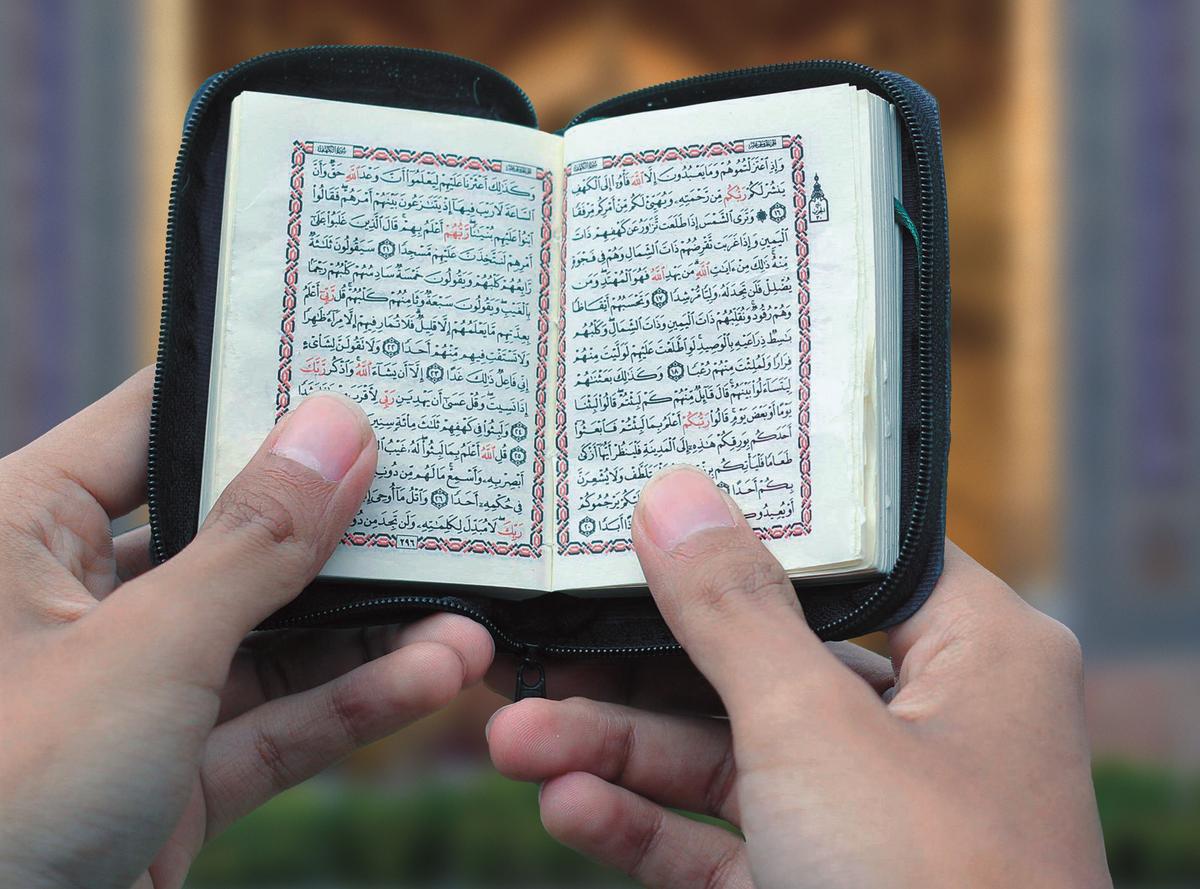 وَإِذِ ٱعْتَزَلْتُمُوهُمْ وَمَا يَعْبُدُونَ إِلَّا ٱللَّهَ فَأْوُۥٓا۟ إِلَى ٱلْكَهْفِ
يَنشُرْ لَكُمْ رَبُّكُم مِّن رَّحْمَتِهِۦ وَيُهَيِّئْ لَكُم مِّنْ أَمْرِكُم مِّرْفَقًا
١٦ ۞ وَتَرَى ٱلشَّمْسَ إِذَا طَلَعَت تَّزَٰوَرُ عَن كَهْفِهِمْ ذَاتَ
ٱلْيَمِينِ وَإِذَا غَرَبَت تَّقْرِضُهُمْ ذَاتَ ٱلشِّمَالِ وَهُمْ فِى فَجْوَةٍ
مِّنْهُ ذَٰلِكَ مِنْ ءَايَٰتِ ٱللَّهِ مَن يَهْدِ ٱللَّهُ فَهُوَ ٱلْمُهْتَدِ وَمَن
يُضْلِلْ فَلَن تَجِدَ لَهُۥ وَلِيًّا مُّرْشِدًا ١٧ وَتَحْسَبُهُمْ أَيْقَاظًا
وَهُمْ رُقُودٌ وَنُقَلِّبُهُمْ ذَاتَ ٱلْيَمِينِ وَذَاتَ ٱلشِّمَالِ وَكَلْبُهُم
بَٰسِطٌ ذِرَاعَيْهِ بِٱلْوَصِيدِ لَوِ ٱطَّلَعْتَ عَلَيْهِمْ لَوَلَّيْتَ مِنْهُمْ
فِرَارًا وَلَمُلِئْتَ مِنْهُمْ رُعْبًا ١٨ وَكَذَٰلِكَ بَعَثْنَٰهُمْ
لِيَتَسَآءَلُوا۟ بَيْنَهُمْ قَالَ قَآئِلٌ مِّنْهُمْ كَمْ لَبِثْتُمْ قَالُوا۟ لَبِثْنَا
يَوْمًا أَوْ بَعْضَ يَوْمٍ قَالُوا۟ رَبُّكُمْ أَعْلَمُ بِمَا لَبِثْتُمْ فَٱبْعَثُوٓا۟
أَحَدَكُم بِوَرِقِكُمْ هَٰذِهِۦٓ إِلَى ٱلْمَدِينَةِ فَلْيَنظُرْ أَيُّهَآ أَزْكَىٰ
طَعَامًا فَلْيَأْتِكُم بِرِزْقٍ وَلْيَتَلَطَّفْ وَلَا يُشْعِرَنَّ
بِكُمْ أَحَدًا عَلَيْكُمْ يَرْجُمُوكُمْ
أَوْ يُعِيدُوكُمْ أَبَدًا ٢٠
وَكَذَٰلِكَ أَعْثَرْنَا عَلَيْهِمْ لِيَعْلَمُوٓا۟ أَنَّ وَعْدَ ٱللَّهِ حَقٌّ وَأَنَّ
ٱلسَّاعَةَ لَا رَيْبَ فِيهَآ إِذْ يَتَنَٰزَعُونَ بَيْنَهُمْ أَمْرَهُمْ فَقَالُوا۟
ٱبْنُوا۟ عَلَيْهِم بُنْيَٰنًا رَّبُّهُمْ أَعْلَمُ بِهِمْ قَالَ ٱلَّذِينَ غَلَبُوا۟ عَلَىٰٓ
أَمْرِهِمْ لَنَتَّخِذَنَّ عَلَيْهِم مَّسْجِدًا ٢١ سَيَقُولُونَ ثَلَٰثَةٌ
رَّابِعُهُمْ كَلْبُهُمْ وَيَقُولُونَ خَمْسَةٌ سَادِسُهُمْ كَلْبُهُمْ رَجْمًۢا
بِٱلْغَيْبِ وَيَقُولُونَ سَبْعَةٌ وَثَامِنُهُمْ كَلْبُهُمْ قُل رَّبِّىٓ أَعْلَمُ
بِعِدَّتِهِم مَّا يَعْلَمُهُمْ إِلَّا قَلِيلٌ فَلَا تُمَارِ فِيهِمْ إِلَّا مِرَآءً ظَٰهِرًا
وَلَا تَسْتَفْتِ فِيهِم مِّنْهُمْ أَحَدًا ٢٢ وَلَا تَقُولَنَّ لِشَا۟ىْءٍ
إِنِّى فَاعِلٌ ذَٰلِكَ غَدًا ٢٣ إِلَّآ أَن يَشَآءَ ٱللَّهُ وَٱذْكُر رَّبَّكَ
إِذَا نَسِيتَ وَقُلْ عَسَىٰٓ أَن يَهْدِيَنِ رَبِّى لِأَقْرَبَ
٢٤ وَلَبِثُوا۟ فِى كَهْفِهِمْ ثَلَٰثَ مِا۟ئَةٍ سِنِينَ
٢٥ قُلِ ٱللَّهُ أَعْلَمُ بِمَا لَبِثُوا۟ لَهُۥ غَيْبُ
أَبْصِرْ بِهِۦ وَأَسْمِعْ مَا لَهُم مِّن دُونِهِۦ
فِى حُكْمِهِۦٓ أَحَدًا ٢٦ وَٱتْلُ مَآ أُوحِىَ
رَبِّكَ لَا مُبَدِّلَ لِكَلِمَٰتِهِۦ وَلَن تَجِدَ مِن دُونِهِۦ
٢٩٦